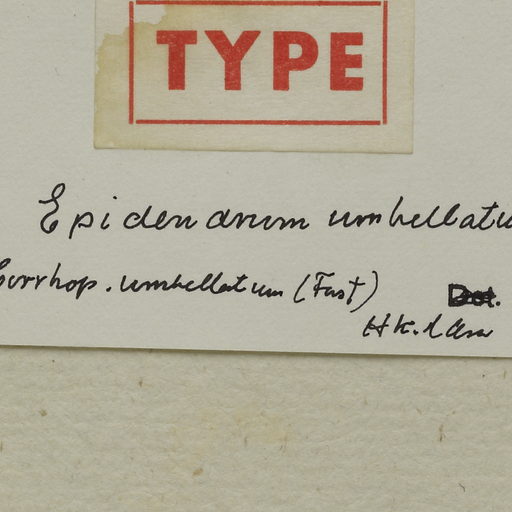 TYPE
Epidendrum umbellatu
Cirrhop. umbellatum (Forst)
Det.